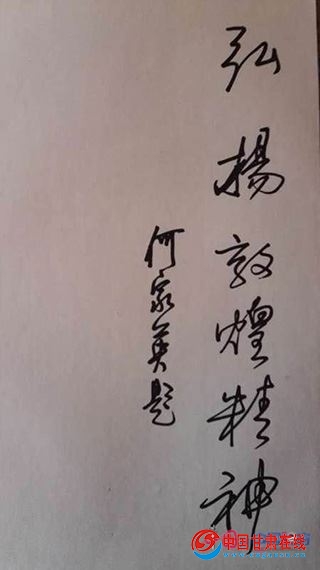 弘揚敦煌精神
何家英题
中国甘肃在线